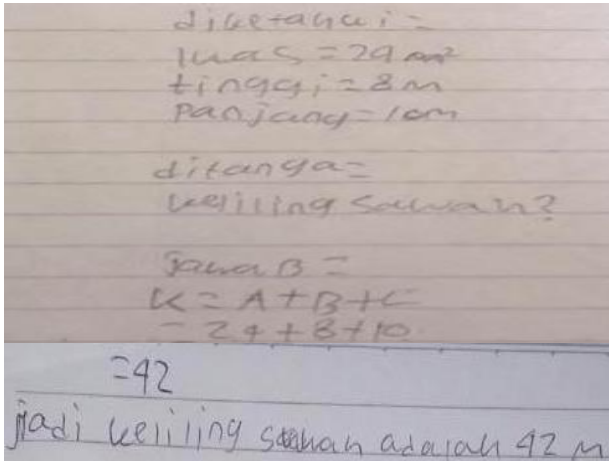 diketahui =
luas = 24 m²
tinggi = 8 m
Panjang = 10m
ditanya =
keliling sawah?
Jawab =
K = A + B + C
= 24 + 8 + 10
= 42
jadi keliling sawah adalah 42 m